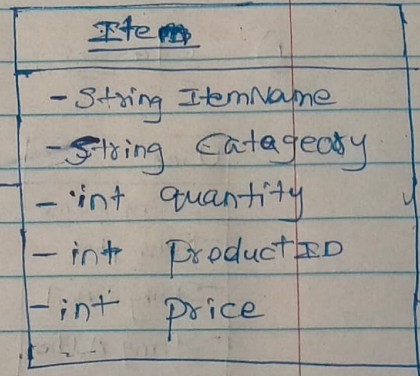 Item
- String ItemName
- String Categeory
- int quantity
- int ProductID
- int Price